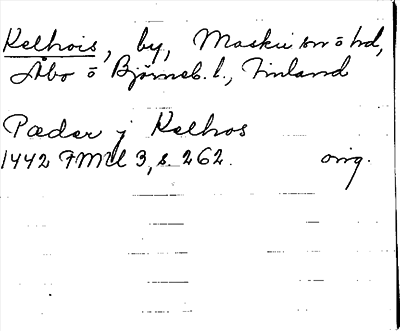 Kelhois, by, Masku sn o hd,
Åbo o Björneb. l., Finland
Pæder j Kelhos
1442 FMU 3, s. 262. orig.